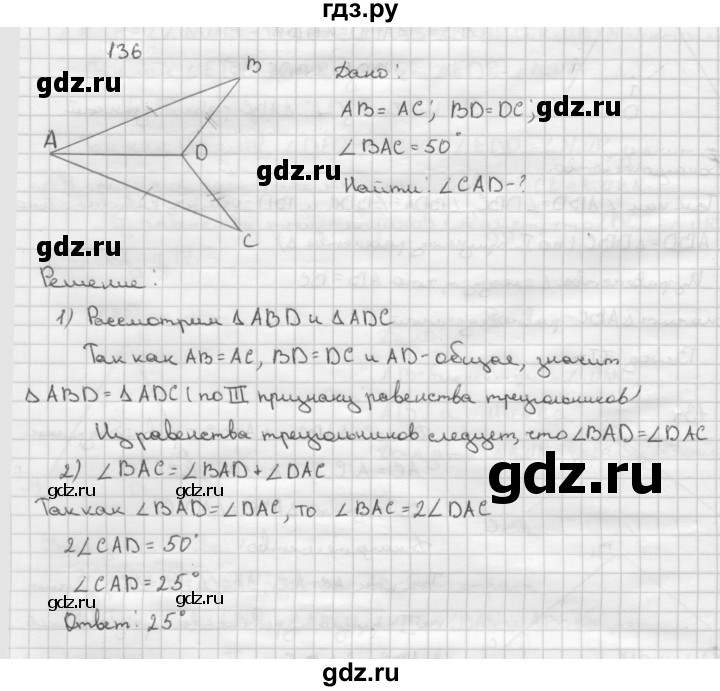 гдз.ру
136
gdz.ru
A
B
D
C
Дано:
AB = AC; BD = DC;
gdz.ru
∠BAC = 50°
Найти: ∠CAD - ?
gdz.ru
Решение:
1) Рассмотрим △ABD и △ADC
Так как AB = AC, BD = DC и AD - общая, значит
△ABD = △ADC (по III признаку равенства треугольников)
Из равенства треугольников следует, что ∠BAD = ∠DAC
2) ∠BAC = ∠BAD + ∠DAC
gdz.ru
gdz.ru
gdz.ru
Так как ∠BAD = ∠DAC, то ∠BAC = 2∠DAC
2∠CAD = 50°
∠CAD = 25°
gdz.ru
gdz.ru
Ответ: 25°
gdz.ru